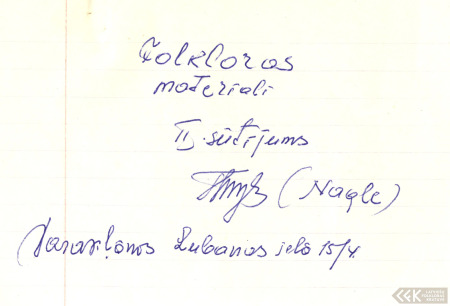 Folkloras
materiali
II sūtījums
(Nagle)
Varakļānos Lubanas ielā 15/4.